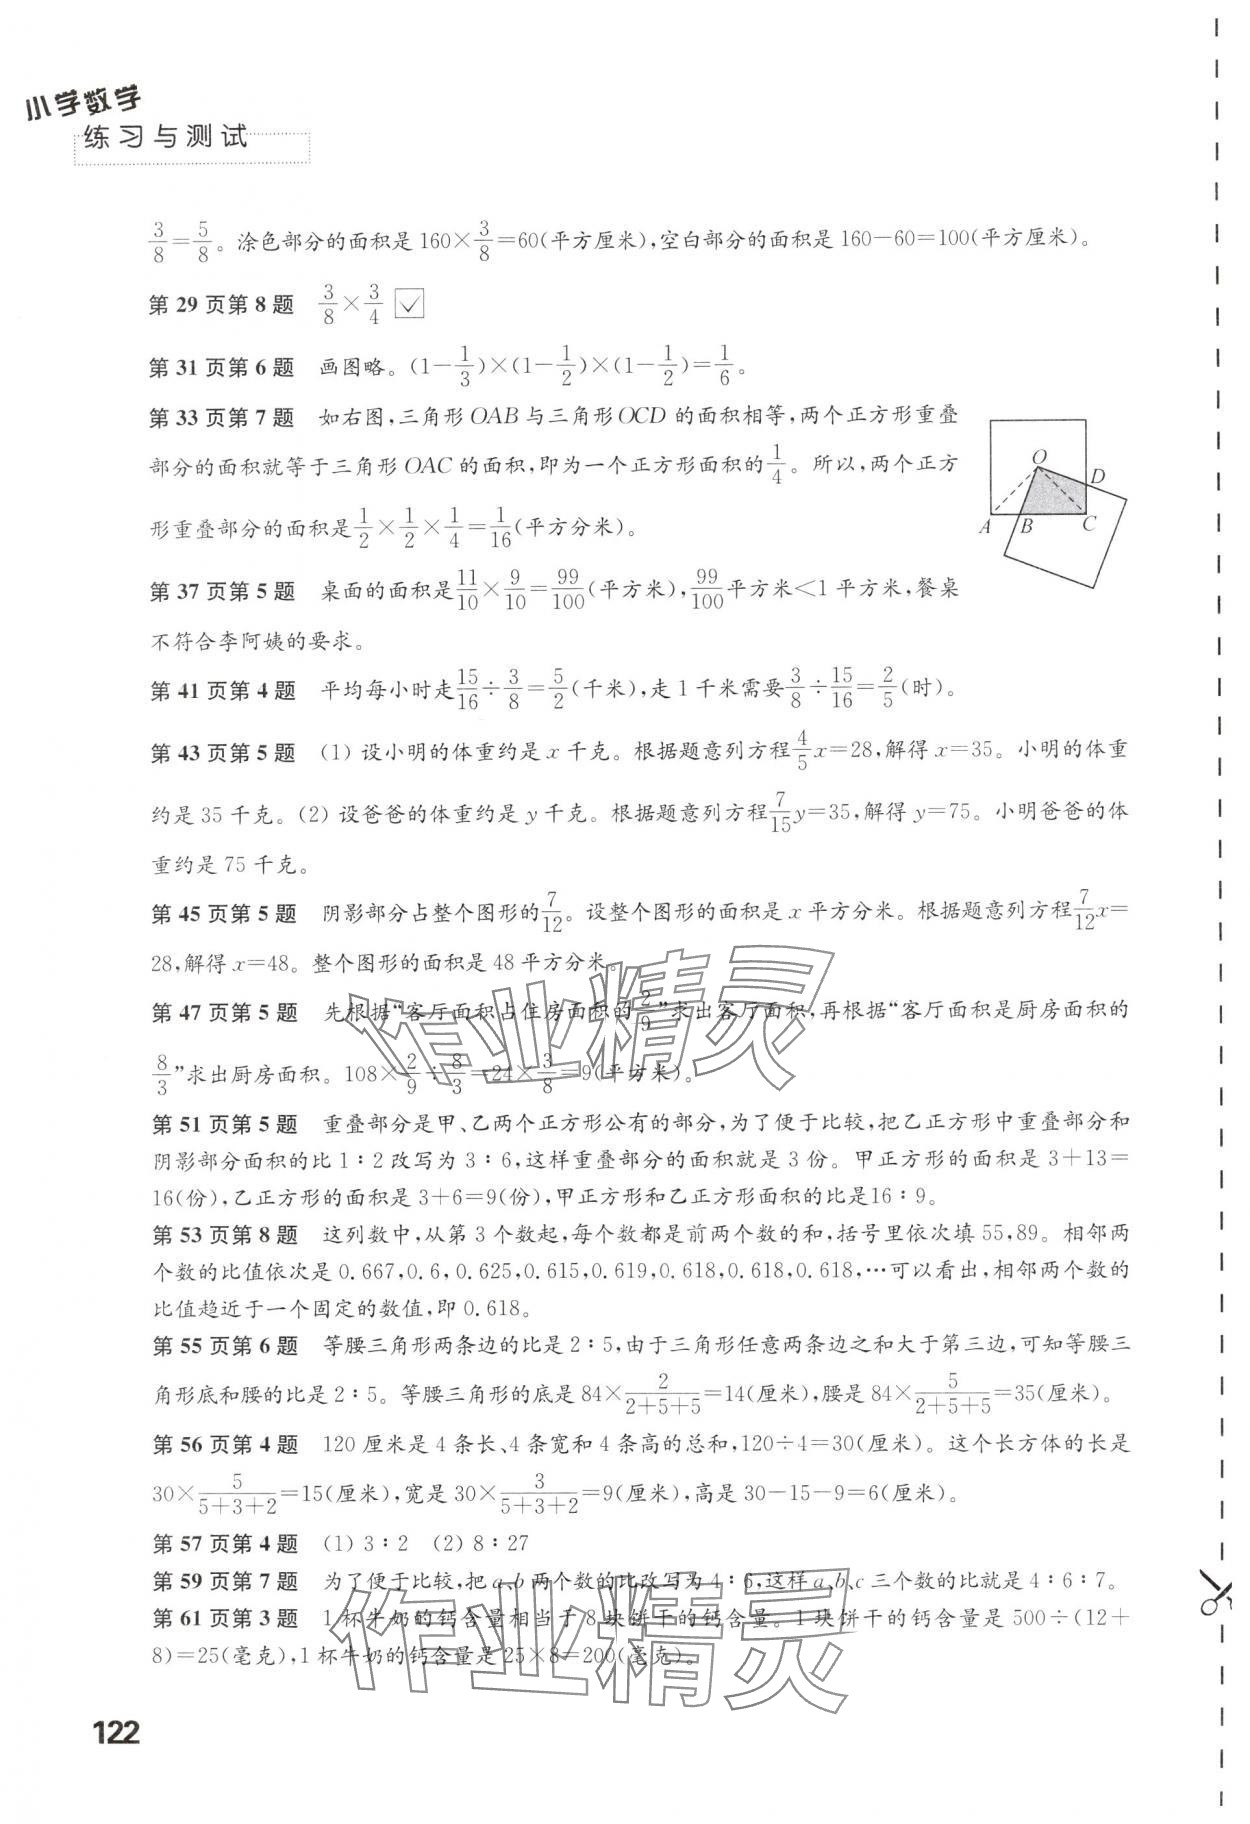 小学数学
练习与测试
3/8=5/8。涂色部分的面积是160×3/8=60(平方厘米),空白部分的面积是160-60=100(平方厘米)。
第29页第8题 3/8×3/4 ✓
第31页第6题 画图略。(1-1/3)×(1-1/2)×(1-1/2)=1/6。
第33页第7题 如右图,三角形OAB与三角形OCD的面积相等,两个正方形重叠
部分的面积就等于三角形OAC的面积,即为一个正方形面积的1/4。所以,两个正方
形重叠部分的面积是1/2×1/2×1/4=1/16(平方分米)。
O
D
A B C
第37页第5题 桌面的面积是11/10×9/10=99/100(平方米),99/100平方米<1平方米,餐桌
不符合李阿姨的要求。
第41页第4题 平均每小时走15/16÷3/8=5/2(千米),走1千米需要3/8÷15/16=2/5(时)。
第43页第5题 (1) 设小明的体重约是x千克。根据题意列方程4/5x=28,解得x=35。小明的体重
约是35千克。(2) 设爸爸的体重约是y千克。根据题意列方程7/15y=35,解得y=75。小明爸爸的体
重约是75千克。
第45页第5题 阴影部分占整个图形的7/12。设整个图形的面积是x平方分米。根据题意列方程7/12x=
28,解得x=48。整个图形的面积是48平方分米。
第47页第5题 先根据“客厅面积占住房面积的2/9”求出客厅面积,再根据“客厅面积是厨房面积的
8/3”求出厨房面积。108×2/9÷8/3=24×3/8=9(平方米)。
作业精灵
第51页第5题 重叠部分是甲、乙两个正方形公有的部分,为了便于比较,把乙正方形中重叠部分和
阴影部分面积的比1∶2改写为3∶6,这样重叠部分的面积就是3份。甲正方形的面积是3+13=
16(份),乙正方形的面积是3+6=9(份),甲正方形和乙正方形面积的比是16∶9。
第53页第8题 这列数中,从第3个数起,每个数都是前两个数的和,括号里依次填55,89。相邻两
个数的比值依次是0.667,0.6,0.625,0.615,0.619,0.618,0.618,0.618,…可以看出,相邻两个数的
比值趋近于一个固定的数值,即0.618。
第55页第6题 等腰三角形两条边的比是2∶5,由于三角形任意两条边之和大于第三边,可知等腰三
角形底和腰的比是2∶5。等腰三角形的底是84×2/(2+5+5)=14(厘米),腰是84×5/(2+5+5)=35(厘米)。
第56页第4题 120厘米是4条长、4条宽和4条高的总和,120÷4=30(厘米)。这个长方体的长是
30×5/(5+3+2)=15(厘米),宽是30×3/(5+3+2)=9(厘米),高是30-15-9=6(厘米)。
第57页第4题 (1) 3∶2 (2) 8∶27
第59页第7题 为了便于比较,把a、b两个数的比改写为4∶6,这样a、b、c三个数的比就是4∶6∶7。
第61页第3题 1杯牛奶的钙含量相当于8块饼干的钙含量。1块饼干的钙含量是500÷(12+
8)=25(毫克),1杯牛奶的钙含量是25×8=200(毫克)。
作业精灵
122